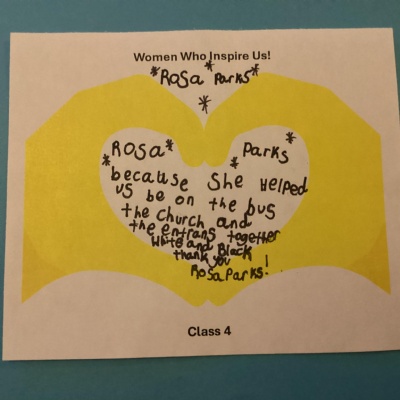 Women Who Inspire Us!
*Rosa Parks*
*
*ROSA* *Parks*
because She Helped
us be on the bus
the church and
the entrans together
White and Black
thank you !
Rosa Parks!
Class 4